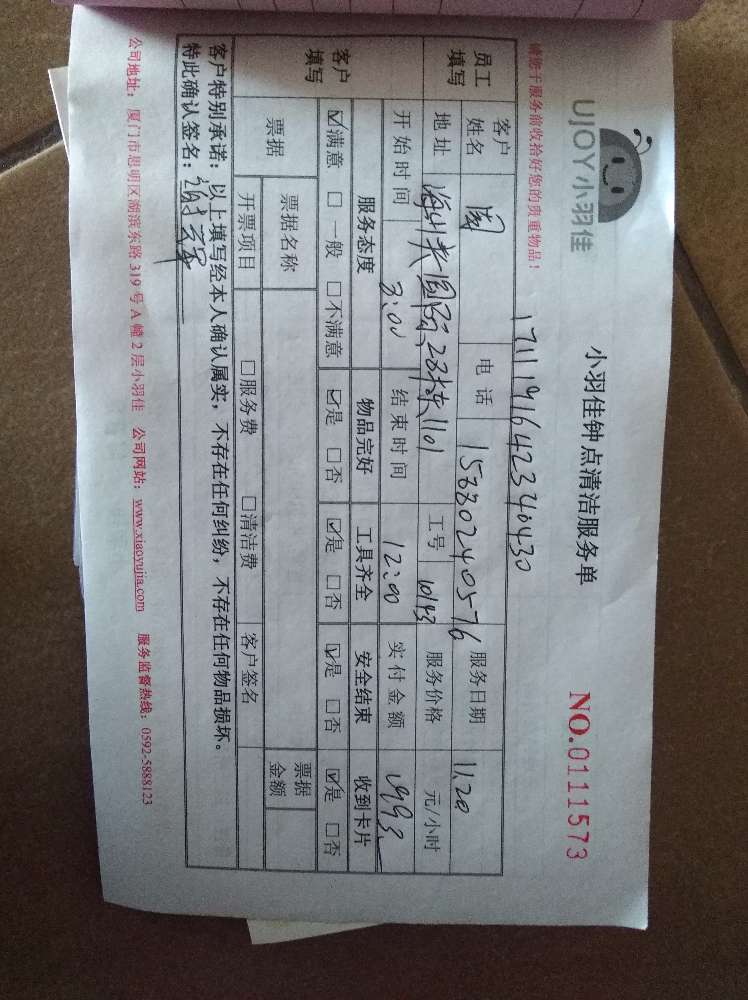 UJOY小羽佳
小羽佳钟点清洁服务单
NO.0111573
请您于服务前收拾好您的贵重物品！
1711191642340430
员工填写 客户姓名 周 电话 15880240576 服务日期 11.20
地址 28栋1101 工号 10143 服务价格 元/小时
开始时间 8:00 结束时间 12:00 实付金额
客户填写 服务态度 物品完好 工具齐全 安全结束 收到卡片
☑满意 □一般 □不满意 ☑是 □否 ☑是 □否 ☑是 □否 ☑是 □否
票据 票据名称 票据金额
开票项目 □服务费 □清洁费 客户签名
客户特别承诺：以上填写经本人确认属实，不存在任何纠纷，不存在任何物品损坏。
特此确认签名：
公司地址：厦门市思明区湖滨东路319号A幢2层小羽佳 公司网站：www.xiaoyujia.com 服务监督热线：0592-5888123